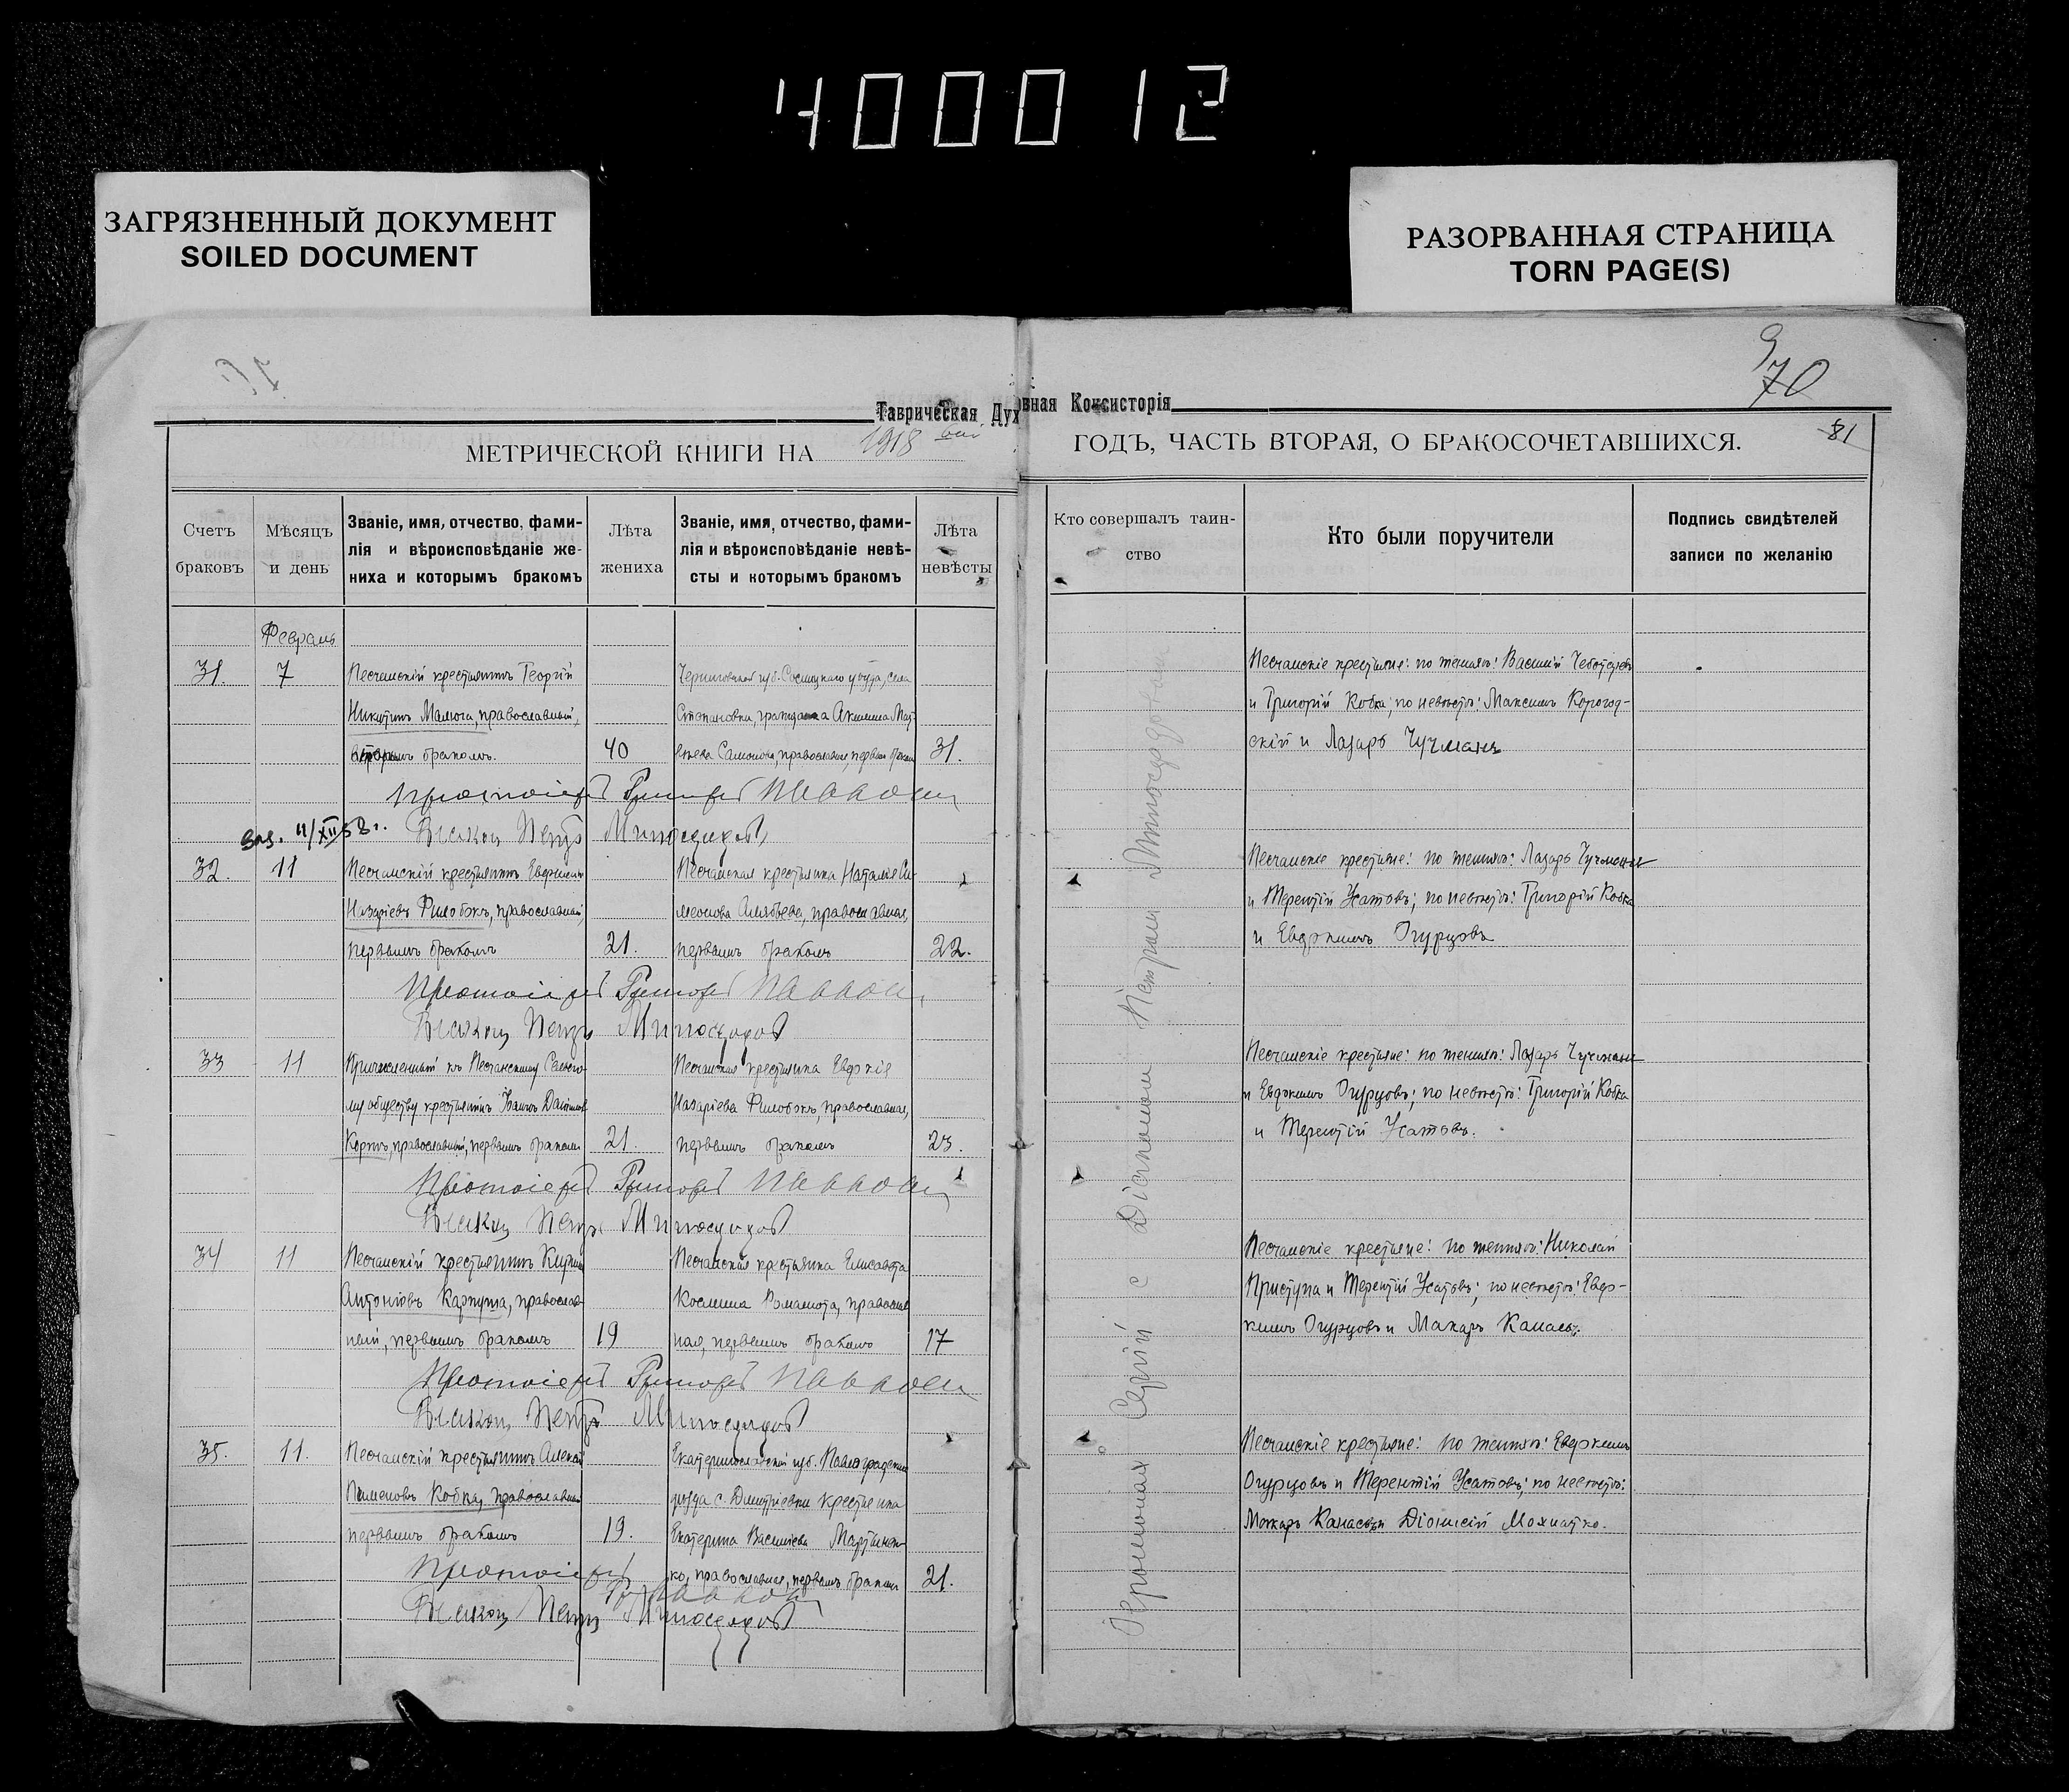 400012
ЗАГРЯЗНЕННЫЙ ДОКУМЕНТ
SOILED DOCUMENT
РАЗОРВАННАЯ СТРАНИЦА
TORN PAGE(S)
70
81
Таврическая Духовная Консисторія
МЕТРИЧЕСКОЙ КНИГИ НА 1918 ГОДЪ, ЧАСТЬ ВТОРАЯ, О БРАКОСОЧЕТАВШИХСЯ.
Счетъ
браковъ
Мѣсяцъ
и день
Званіе, имя, отчество, фами-
лія и вѣроисповѣданіе же-
ниха и которымъ бракомъ
Лѣта
жениха
Званіе, имя, отчество, фами-
лія и вѣроисповѣданіе невѣ-
сты и которымъ бракомъ
Лѣта
невѣсты
Кто совершалъ таин-
ство
Кто были поручители
Подпись свидѣтелей
записи по желанію
Февраль
31.
7
Песчанскій крестьянинъ Георгій
Никитинъ Малюга, православный,
вторымъ бракомъ.
40
Черниговской губ. Сосницкаго уѣзда, села
Степановки, гражданка Акилина Мат-
вѣева Самойлова, православная, первымъ бракомъ
31.
Песчанскіе крестьяне: по женихѣ: Василій
и Григорій Кобка; по невѣстѣ: Максимъ Корогод-
скій и Лазарь Чучманъ
Протоіерей Григорій
Діаконъ Петръ Милосердовъ
11/XII 58 г.
32.
11
Песчанскій крестьянинъ Евдокимъ
Назаріевъ Филобокъ, православный,
первымъ бракомъ
21.
Песчанская крестьянка Наталія Си-
меонова Алябьева, православная,
первымъ бракомъ
22.
Песчанскіе крестьяне: по женихѣ: Лазарь Чучманъ
и Терентій Усатовъ; по невѣстѣ: Григорій Кобка
и Евдокимъ Огурцовъ
Протоіерей Григорій
Діаконъ Петръ Милосердовъ
33
11
Причисленный къ Песчанскому Сельско-
му обществу крестьянинъ Іоаннъ Даніиловъ
православный, первымъ бракомъ
21.
Песчанская крестьянка Евдокія
Назаріева Филобокъ, православная,
первымъ бракомъ
23.
Песчанскіе крестьяне: по женихѣ: Лазарь Чучманъ
и Евдокимъ Огурцовъ; по невѣстѣ: Григорій Кобка
и Терентій Усатовъ.
Протоіерей Григорій
Діаконъ Петръ Милосердовъ
34
11
Песчанскій крестьянинъ
Антоніевъ Карпуша, православ-
ный, первымъ бракомъ
19
Песчанская крестьянка Елисавета
Косьмина православ-
ная, первымъ бракомъ
17
Песчанскіе крестьяне: по женихѣ: Николай
Приступа и Терентій Усатовъ; по невѣстѣ: Евдо-
кимъ Огурцовъ и Макаръ
Протоіерей Григорій
Діаконъ Петръ Милосердовъ
35.
11.
Песчанскій крестьянинъ Алексій
Пименовъ Кобка, православный
первымъ бракомъ
19.
Екатеринославской губ. Павлоградскаго
уѣзда с. Дмитріевки крестьянка
Екатерина Васильева Мартынен-
ко, православная, первымъ бракомъ
21.
Песчанскіе крестьяне: по женихѣ: Евдокимъ
Огурцовъ и Терентій Усатовъ; по невѣстѣ:
Макаръ и Діонисій Мохнатко.
Протоіерей
Діаконъ Петръ Милосердовъ
Іеромонахъ Сергій с Діакономъ Петромъ Милосердовымъ